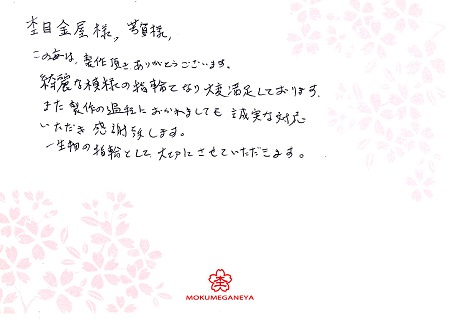 杢目金屋様、芳賀様、
この毎は、製作頂きありがとうございます。
綺麗な模様の指輪となり大変満足しております。
また製作の過程におかれましても誠実な対応
いただき感謝致します。
一生物の指輪として大切にさせていただきます。
杢
MOKUMEGANEYA